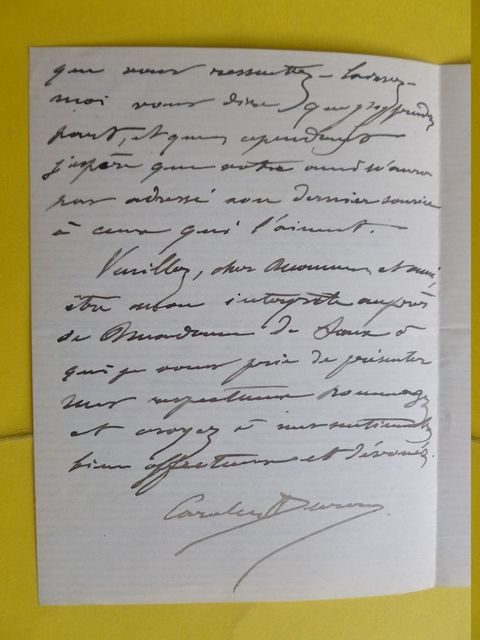 que vous ressentez – Laissez-
moi vous dire que j'y prends
part, et que cependant
j'espère que votre ami n'aura
pas adressé son dernier sourire
à ceux qui l'aiment.
Veuillez, cher Monsieur et ami,
être mon interprète auprès
de Madame de
qui je vous prie de présenter
mes respectueux hommages
et croyez à mes sentiments
bien affectueux et dévoués.
Carolus Duran